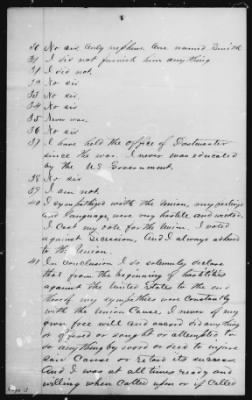 30 No sir only nephew one named Smith
31 I did not furnish him anything
31 I did not.
32 No sir
33 No sir.
34 No sir
35 Never was.
36 No sir
37 I have held the office of Postmaster
since the war. I never was educated
by the US Government.
38 No sir
39 I am not.
40 I sympathized with the Union, my feelings
and language, were my
I cast my vote for the Union. I voted
against secession, and I always adhered
to the Union.
41 In conclusion I do solemnly declare
that from the beginning of hostilities
against the United States to the end
thereof my sympathies were constantly
with the Union Cause, I never of my
own free will and accord did anything
or offered or sought or attempted to
do anything by word or deed to injure
said Cause or retard its success
And I was at all times ready and
willing when called upon or if called